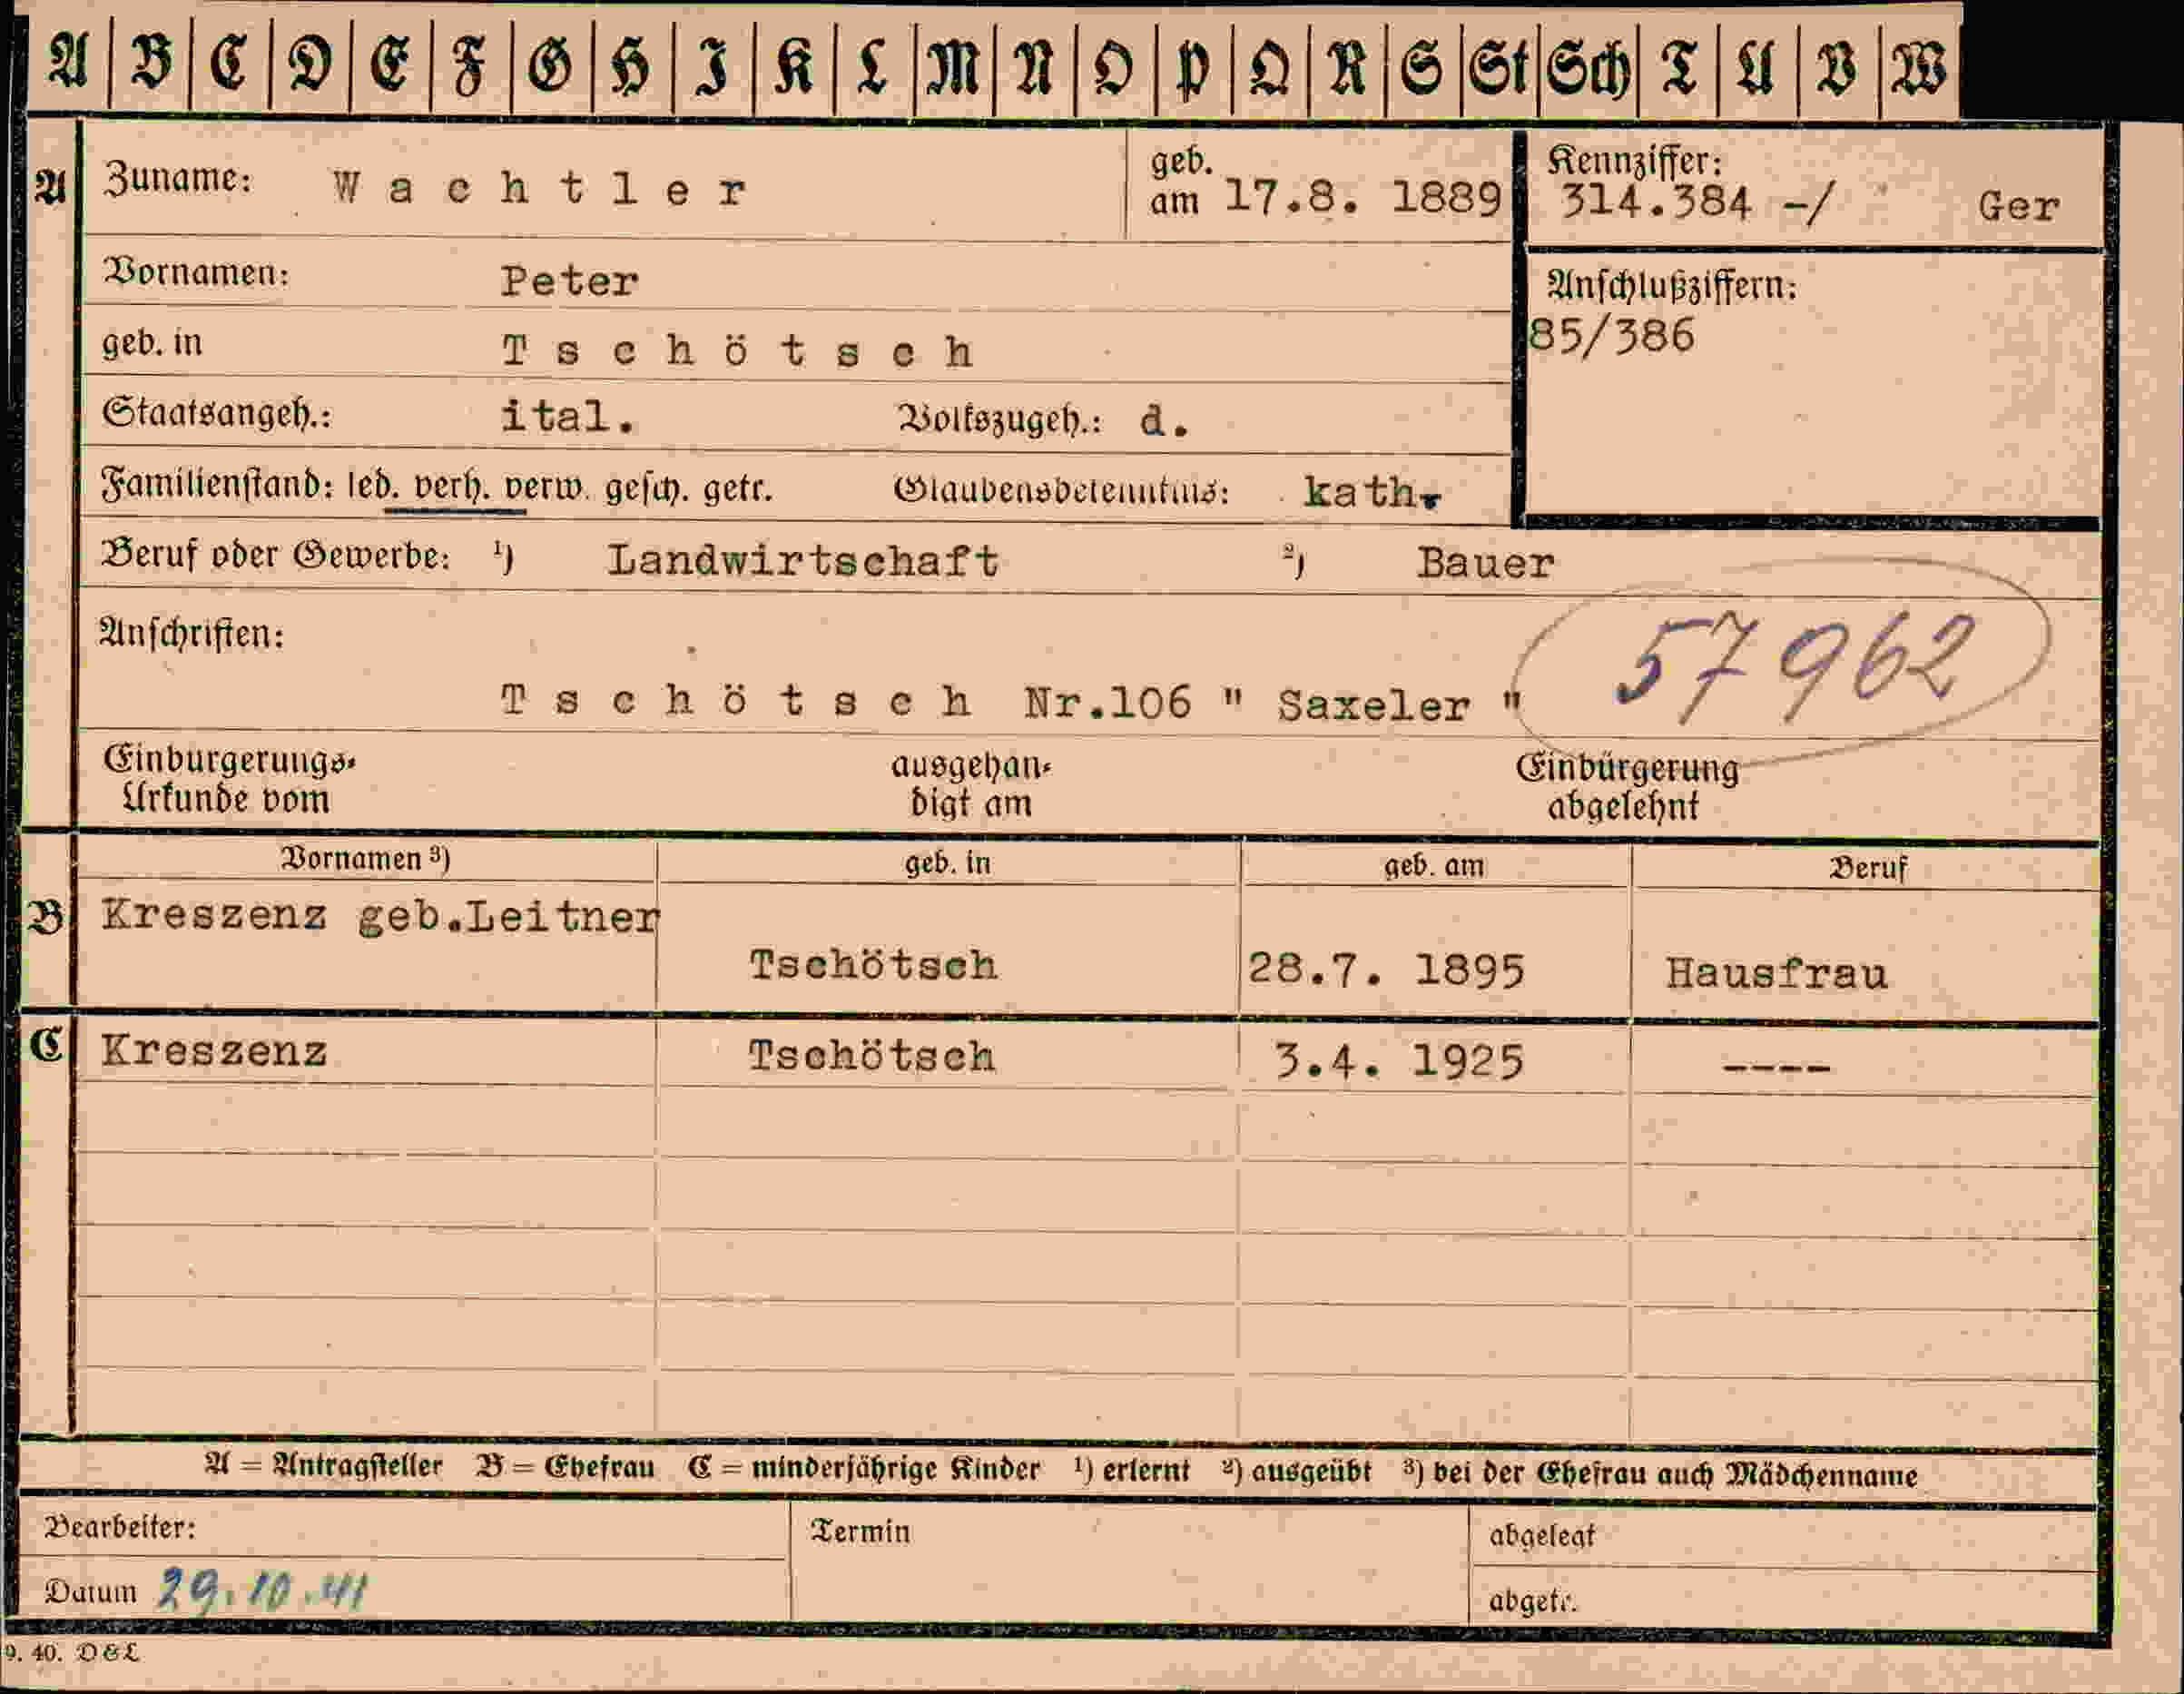 A B C D E F G H I K L M N O P Q R S St Sch T U V W
A Zuname: W a c h t l e r geb. am 17.8. 1889 Kennziffer: 314.384 -/ Ger
Vornamen: Peter Anschlußziffern:
geb. in T s c h ö t s c h 85/386
Staatsangeh.: ital. Volkszugeh.: d.
Familienstand: led. verh. verw. gesch. getr. Glaubensbekenntnis: kath.
Beruf oder Gewerbe: ¹) Landwirtschaft ²) Bauer
Anschriften: 57962
T s c h ö t s c h Nr.106 " Saxeler "
Einbürgerungs- ausgehän- Einbürgerung
Urkunde vom digt am abgelehnt
Vornamen ³) geb. in geb. am Beruf
B Kreszenz geb.Leitner
Tschötsch 28.7. 1895 Hausfrau
C Kreszenz Tschötsch 3.4. 1925 ----
A = Antragsteller B = Ehefrau C = minderjährige Kinder ¹) erlernt ²) ausgeübt ³) bei der Ehefrau auch Mädchenname
Bearbeiter: Termin abgelegt
Datum 29.10.41 abgetr.
9. 40. D&L